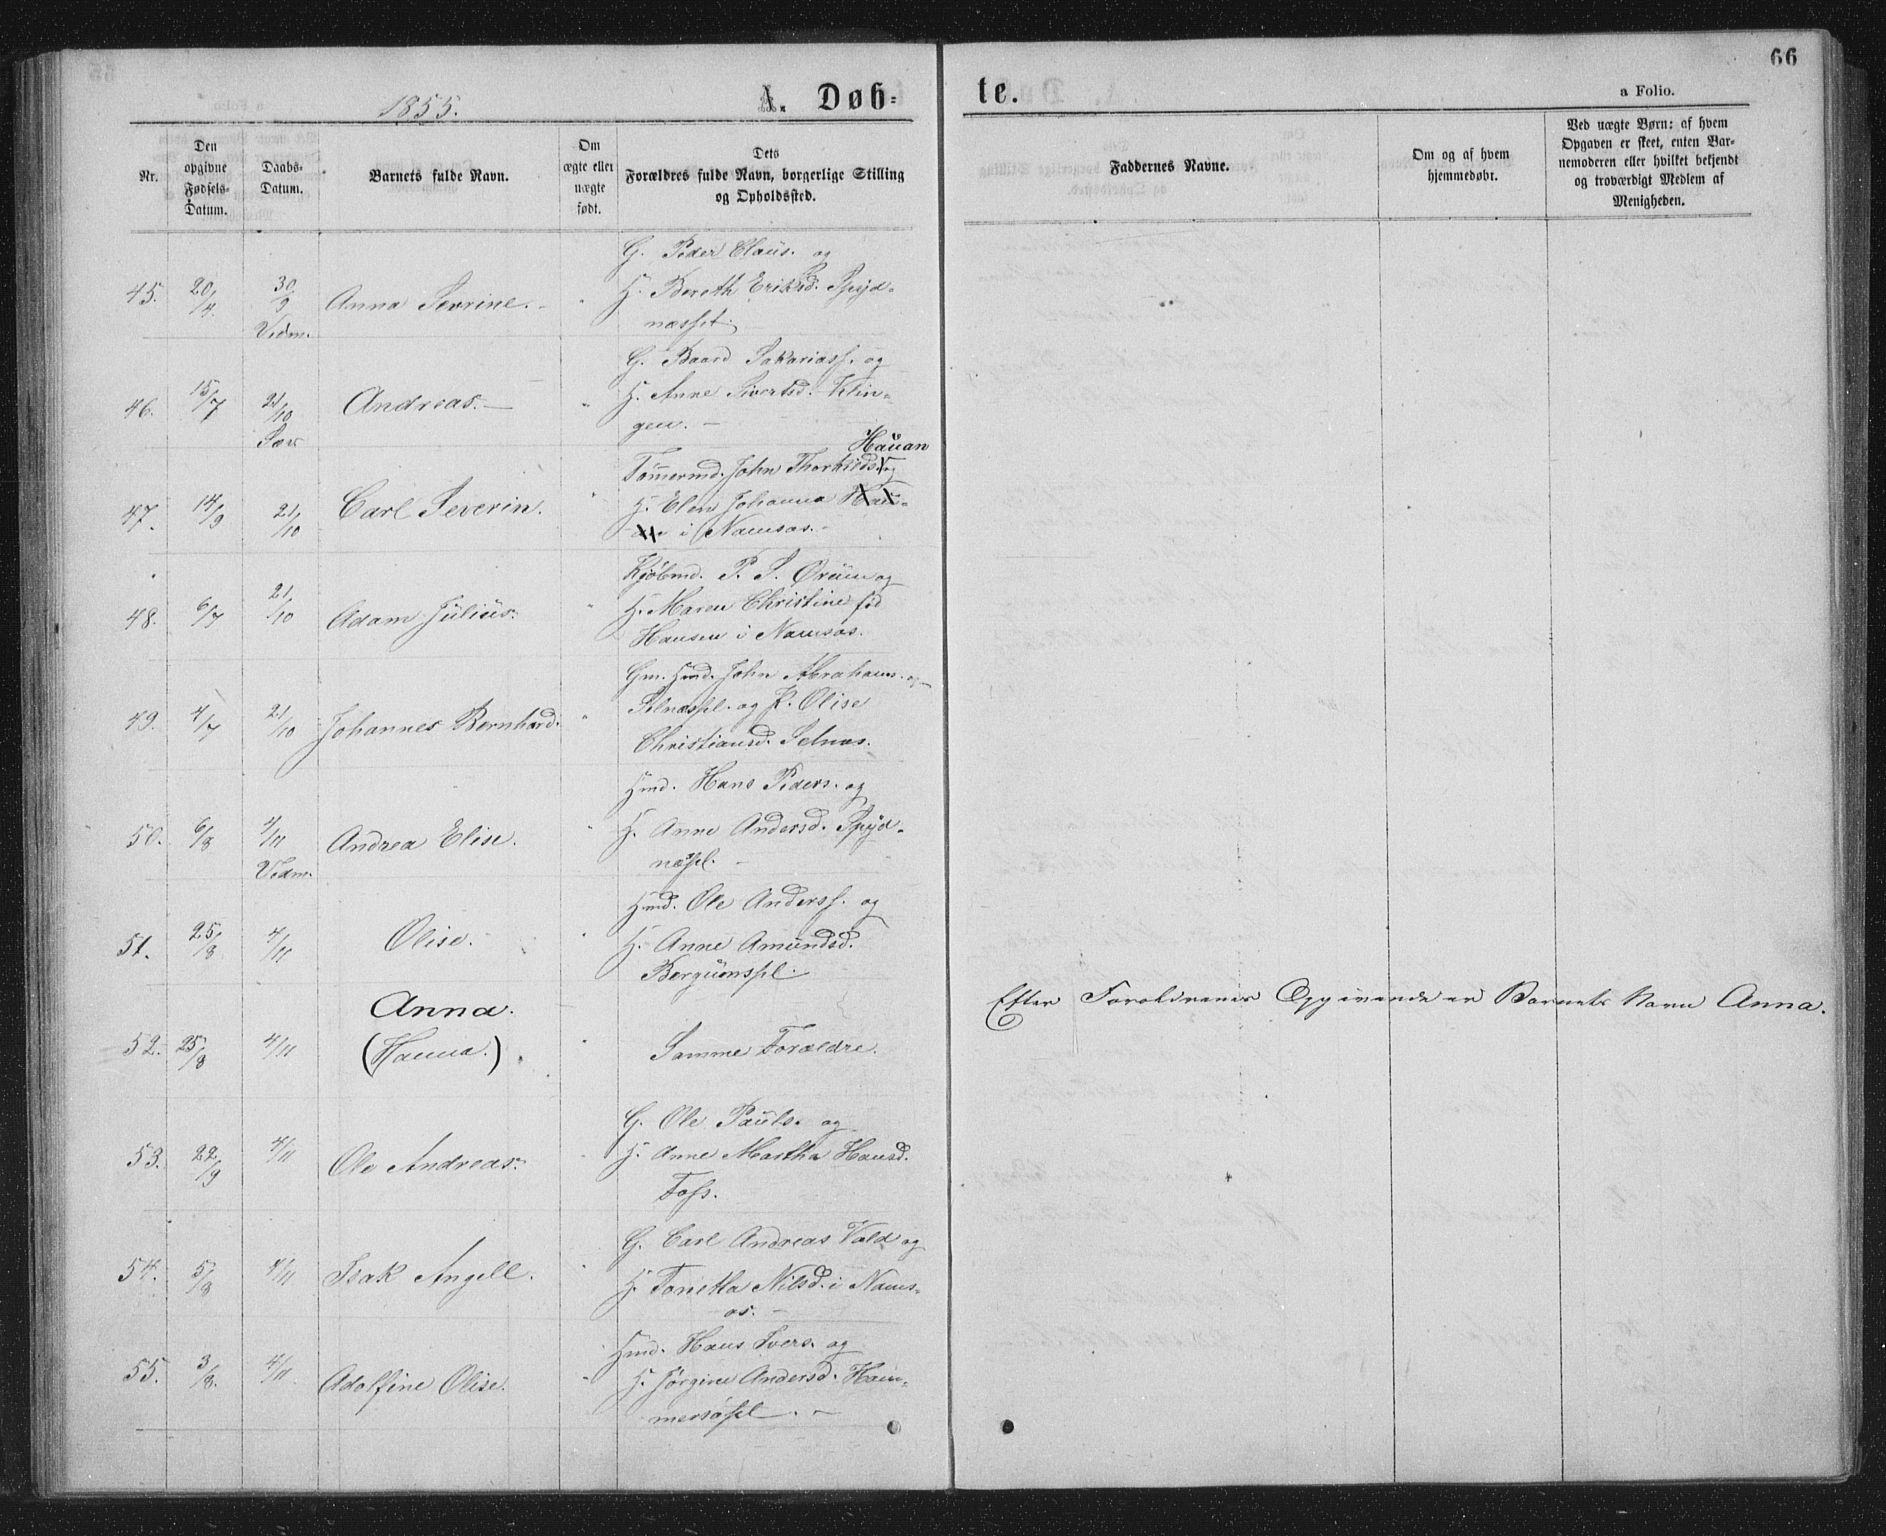 66
1855.
A. Døb-
te.
a Folio.
Nr.
Den opgivne Fødsels-Datum.
Daabs-Datum.
Barnets fulde Navn.
Om ægte eller uægte født.
Dets Forældres fulde Navn, borgerlige Stilling og Opholdssted.
Faddernes Navne.
Om og af hvem hjemmedøbt.
Ved uægte Børn: af hvem Opgaven er skeet, enten Barnemoderen eller hvilket bekjendt og troværdigt Medlem af Menigheden.
G. Peder Claus. og
45. 20/4. 30/9 Anna Sevrine. " H. Bereth Eriksd. Spyd-
Vidm. næsset.
G. Baard Sakariass. og
46. 15/7 21/10 Andreas. " H. Anne Sivertsd. Klin-
Sæv gen.
Hauan
Tømermd. John Thorkilds. og
47. 14/9 21/10 Carl Severin. " H. Elen Johanna Hau-
i Namsos.
Kjøbmd. P. S. Ørum og
48. 6/7 21/10 Adam Julius. " H. Maren Christine fød
Hansen i Namsos.
Gm. Hmd. John Abrahams. og
49. 4/7 21/10 Johannes Bernhard. " Selnæspl. og P. Olise
Christiansd. Selnæs.
Hmd. Hans Peders. og
50. 6/8 4/11 Andrea Elise. " H. Anne Andersd. Spyd-
Vidm. næspl.
Hmd. Ole Anderss. og
51. 25/8 4/11 Olise. " H. Anne Amundsd.
Bergumspl.
Anna.
Efter Forældrenes Opgivende er Barnets Navn Anna.
52. 25/8 4/11 (Hanna.) " Samme Forældre.
G. Ole Pauls. og
53. 22/9 4/11 Ole Andreas. " H. Anne Martha Hansd.
Foss.
G. Carl Andreas Vold og
54. 5/8 4/11 Isak Angell. " H. Tonetta Nilsd. i Nams-
os.
Hmd. Hans Ivers. og
55. 3/8. 4/11 Adolfine Olise. " H. Jørgine Andersd. Ham-
mersøpl.